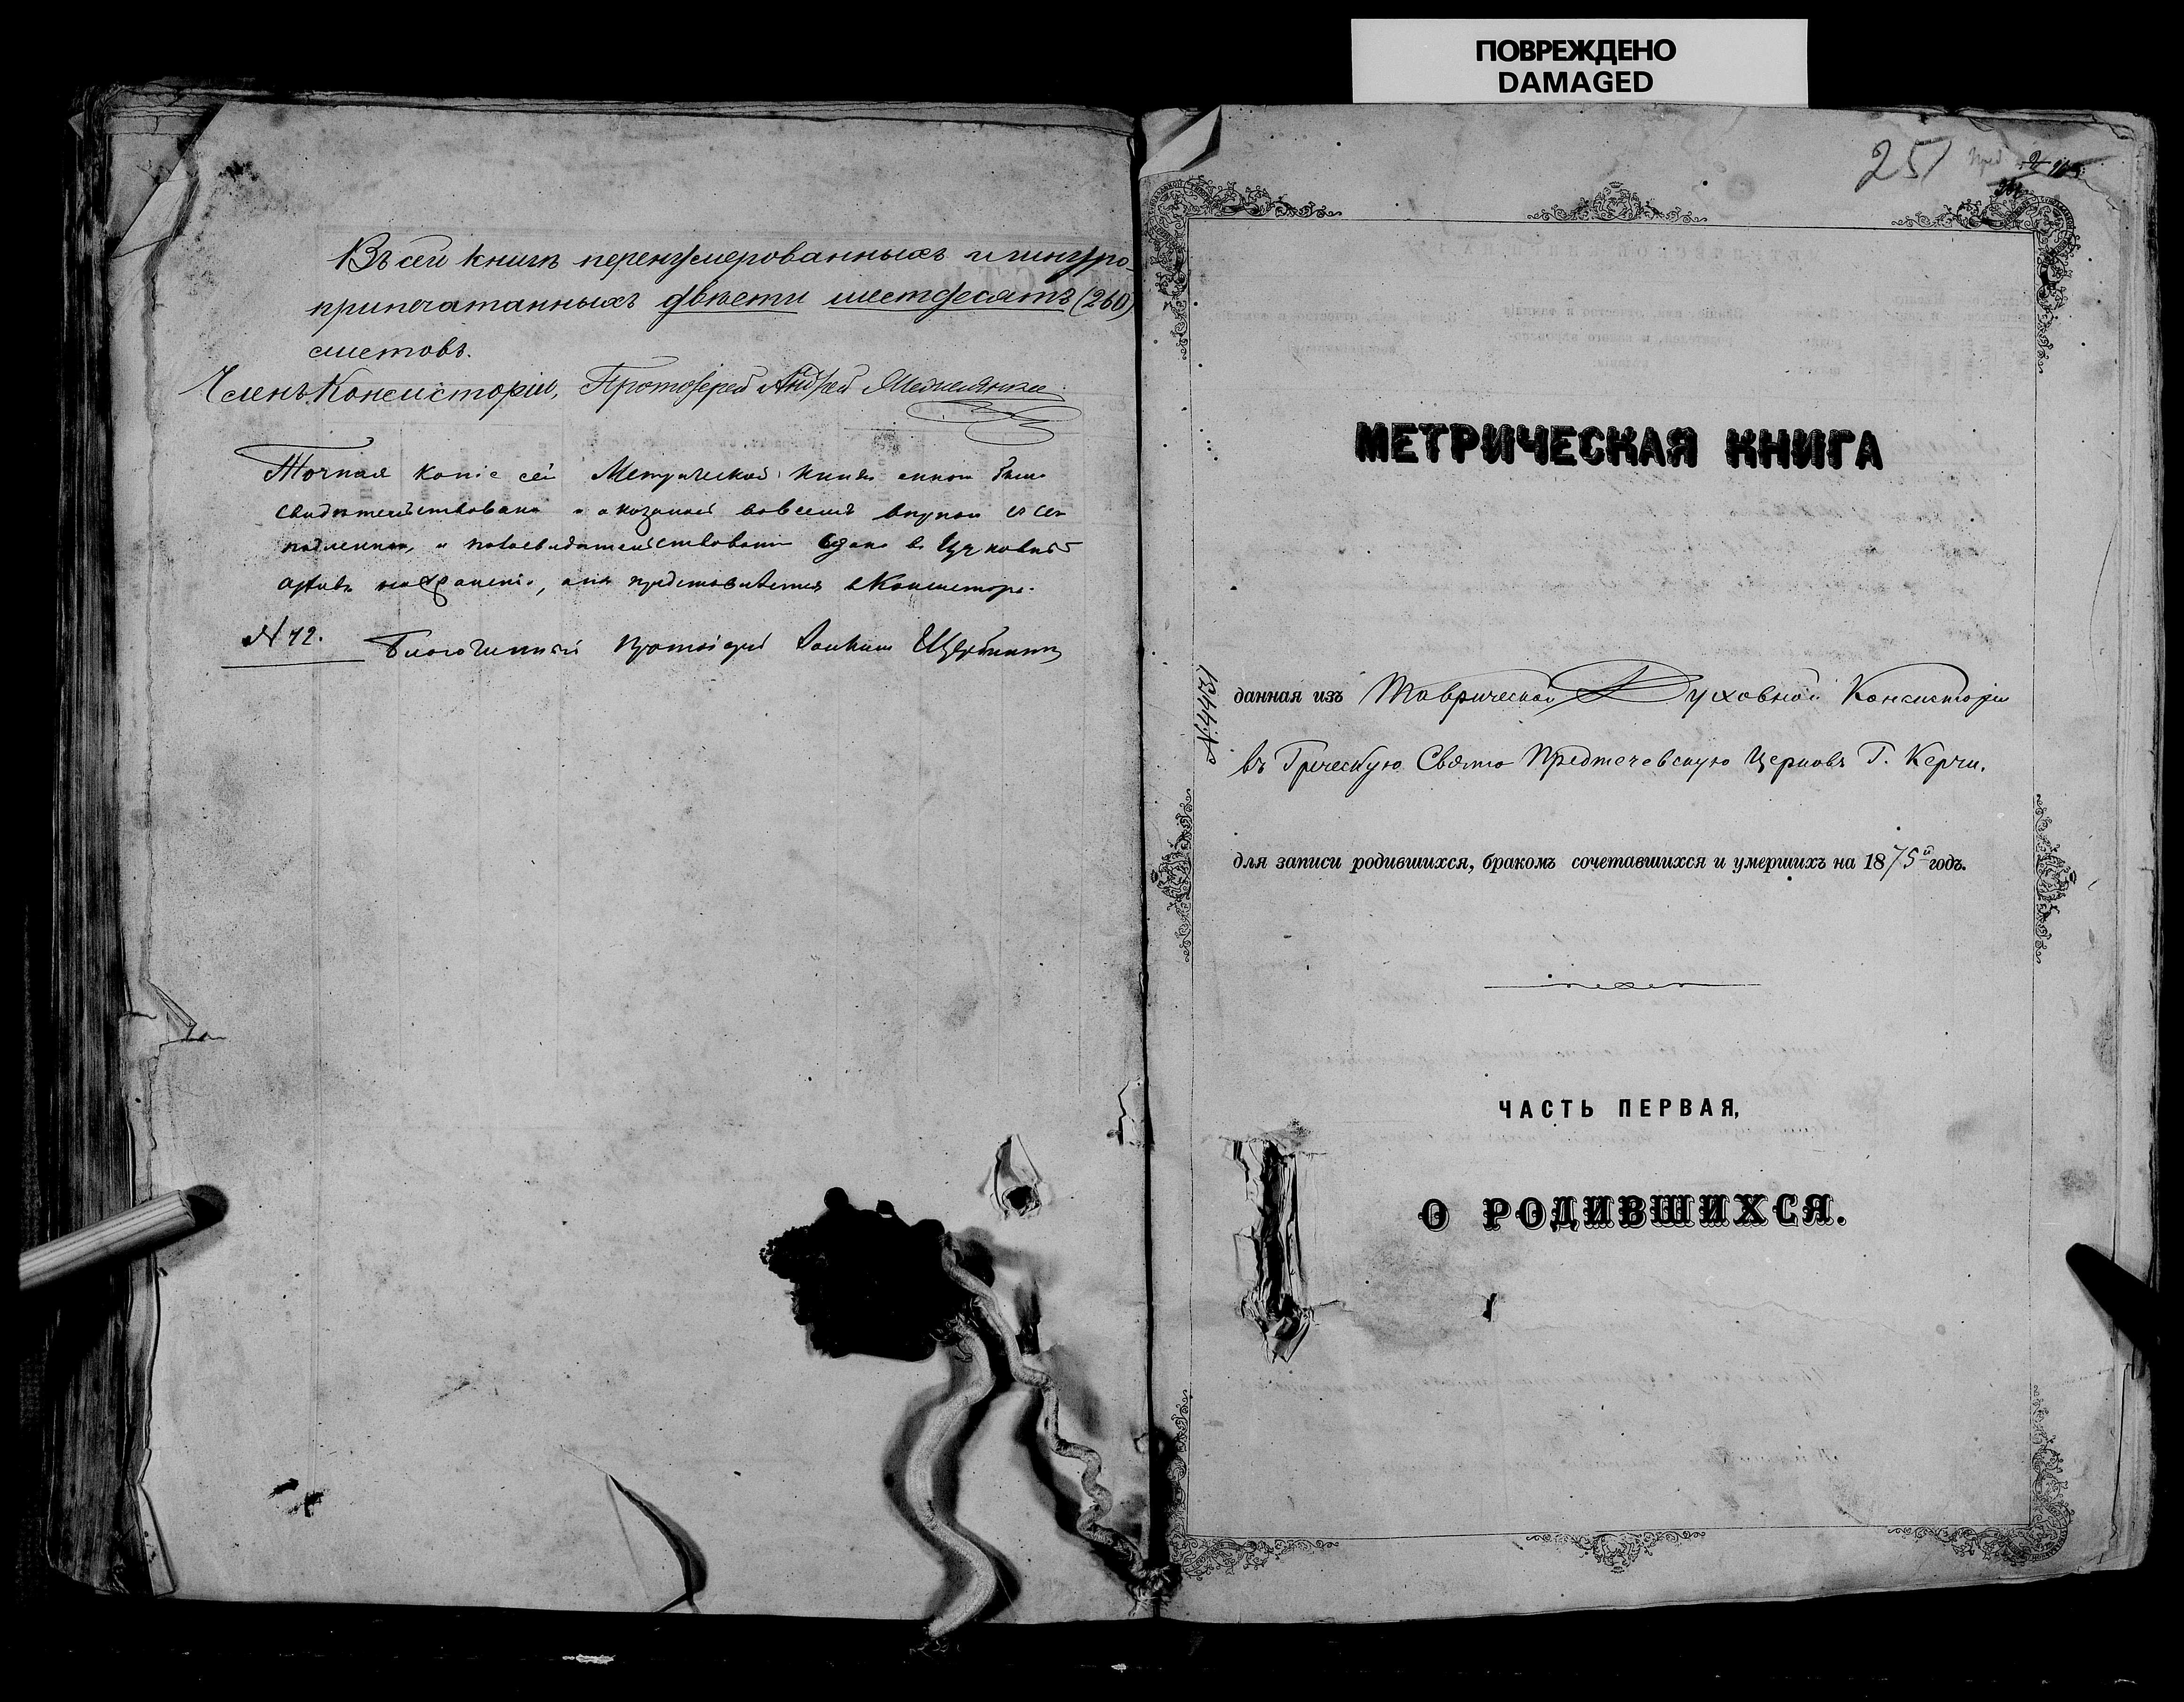 ПОВРЕЖДЕНО
DAMAGED
Въ сей книгѣ перенумерованныхъ и шнуро-
припечатанныхъ двѣсти шестдесятъ (260)
листовъ.
Членъ Консисторіи, Протоіерей Андрей
Точная копіе сей Метрической книги мною были
свидѣтельствована и оказалась во всемъ вѣрною съ сею
подленною, и по освидѣтельствованіи сдана въ Церковный
архивъ на храненіе, а сія представляется в Консисторію.
№ 72. Благочинный Протоіерей
251
МЕТРИЧЕСКАЯ КНИГА
№ 4431
данная изъ Таврической Духовной Консисторіи
въ Греческую Свято Предтечевскую Церковь Г. Керчи.
для записи родившихся, бракомъ сочетавшихся и умершихъ на 1875й годъ.
ЧАСТЬ ПЕРВАЯ,
О РОДИВШИХСЯ.